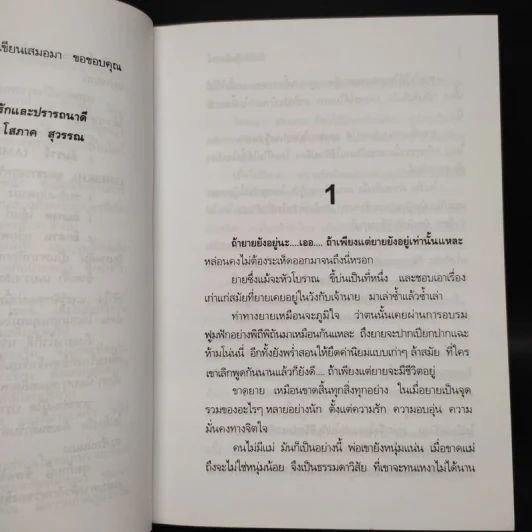 เขียนเสมอมา ขอขอบคุณ
รักและปรารถนาดี
โสภาค สุวรรณ
1
ถ้ายายยังอยู่นะ....เออ.... ถ้าเพียงแต่ยายยังอยู่เท่านั้นแหละ
หล่อนคงไม่ต้องระเห็ดออกมาจนถึงนี่หรอก
ยายซึ่งแม้จะหัวโบราณ ขี้บ่นเป็นที่หนึ่ง และชอบเอาเรื่อง
เก่าแก่สมัยที่ยายเคยอยู่ในวังกับเจ้านาย มาเล่าซ้ำแล้วซ้ำเล่า
ท่าทางยายเหมือนจะภูมิใจ ว่าตนนั้นเคยผ่านการอบรม
ฟูมฟักอย่างพิถีพิถันมาเหมือนกันแหละ ถึงยายจะปากเปียกปากแฉะ
ห้ามโน่นนี่ อีกทั้งยังพร่ำสอนให้ยึดค่านิยมแบบเก่าๆ ล้าสมัย ที่ใคร
เขาเลิกพูดกันนานแล้วก็ยังดี.... ถ้าเพียงแต่ยายจะมีชีวิตอยู่
ขาดยาย เหมือนขาดสิ้นทุกสิ่งทุกอย่าง ในเมื่อยายเป็นจุด
รวมของอะไรๆ หลายอย่างนัก ตั้งแต่ความรัก ความอบอุ่น ความ
มั่นคงทางจิตใจ
คนไม่มีแม่ มันก็เป็นอย่างนี้ พ่อเขายังหนุ่มแน่น เมื่อขาดแม่
ถึงจะไม่ใช่หนุ่มน้อย จึงเป็นธรรมดาวิสัย ที่เขาจะทนเหงาไม่ได้นาน